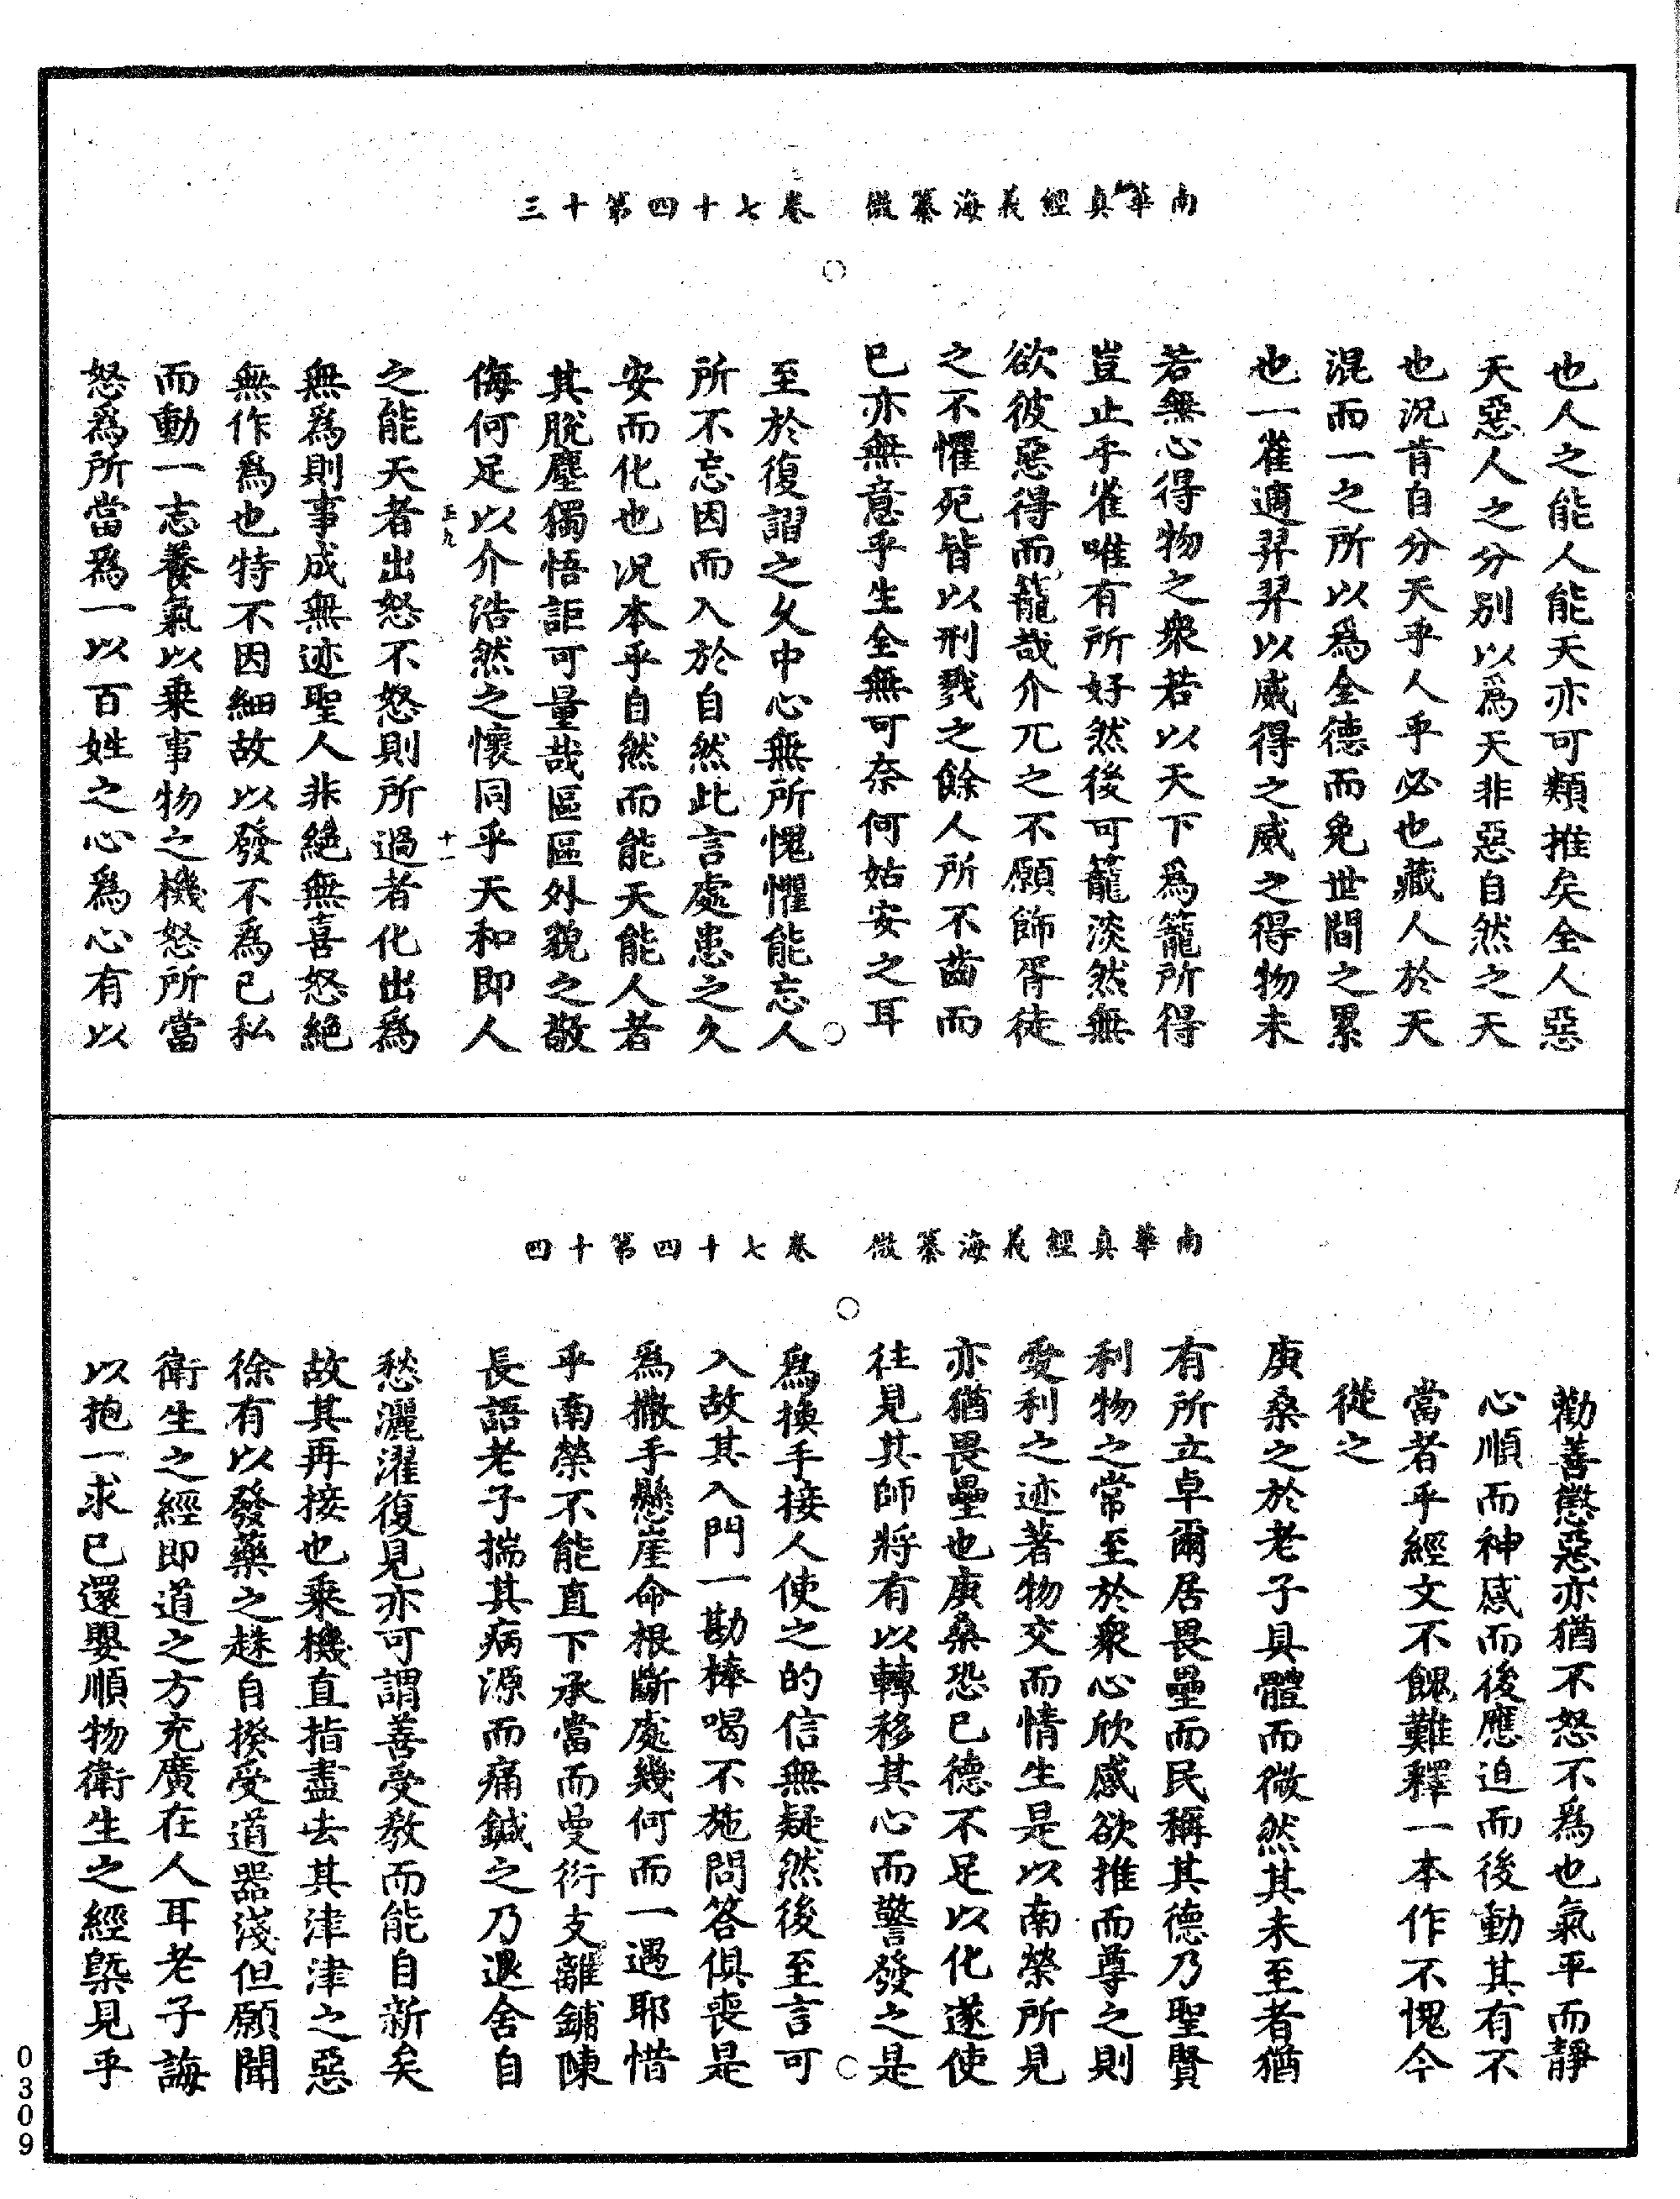 南華真經義海纂微　卷七十四第十三
也人之能人能天亦可類推矣全人惡
天惡人之分別以為天非惡自然之天
也況肯自分天乎人乎必也藏人於天
混而一之所以為全德而免世間之累
也一雀適羿羿以威得之威之得物未
若無心得物之衆若以天下為籠所得
豈止乎雀唯有所好然後可籠淡然無
欲彼惡得而籠哉介兀之不願飾胥徒
之不懼死皆以刑戮之餘人所不齒而
已亦無意乎生全無可奈何姑安之耳
至於復謵之久中心無所愧懼能忘人
所不忘因而入於自然此言處患之久
安而化也況本乎自然而能天能人者
其脫塵獨悟詎可量哉區區外貌之敬
侮何足以介浩然之懷同乎天和即人
之能天者出怒不怒則所過者化出為
無為則事成無迹聖人非絕無喜怒絕
無作為也特不因細故以發不為己私
而動一志養氣以乘事物之機怒所當
怒為所當為一以百姓之心為心有以
十一
南華真經義海纂微　卷七十四第十四
勸善懲惡亦猶不怒不為也氣平而靜
心順而神感而後應迫而後動其有不
當者乎經文不餽難釋一本作不愧今
從之
庚桑之於老子具體而微然其未至者猶
有所立卓爾居畏壘而民稱其德乃聖賢
利物之常至於衆心欣感欲推而尊之則
愛利之迹著物交而情生是以南榮所見
亦猶畏壘也庚桑恐已德不足以化遂使
往見其師將有以轉移其心而警發之是
為換手接人使之的信無疑然後至言可
入故其入門一勘棒喝不施問答俱喪是
為撒手懸崖命根斷處幾何而一遇耶惜
乎南榮不能直下承當而曼衍支離鋪陳
長語老子揣其病源而痛鍼之乃退舍自
愁灑濯復見亦可謂善受教而能自新矣
故其再接也乘機直指盡去其津津之惡
徐有以發藥之趎自揆受道器淺但願聞
衛生之經即道之方充廣在人耳老子誨
以抱一求已還嬰順物衛生之經槩見乎
0309